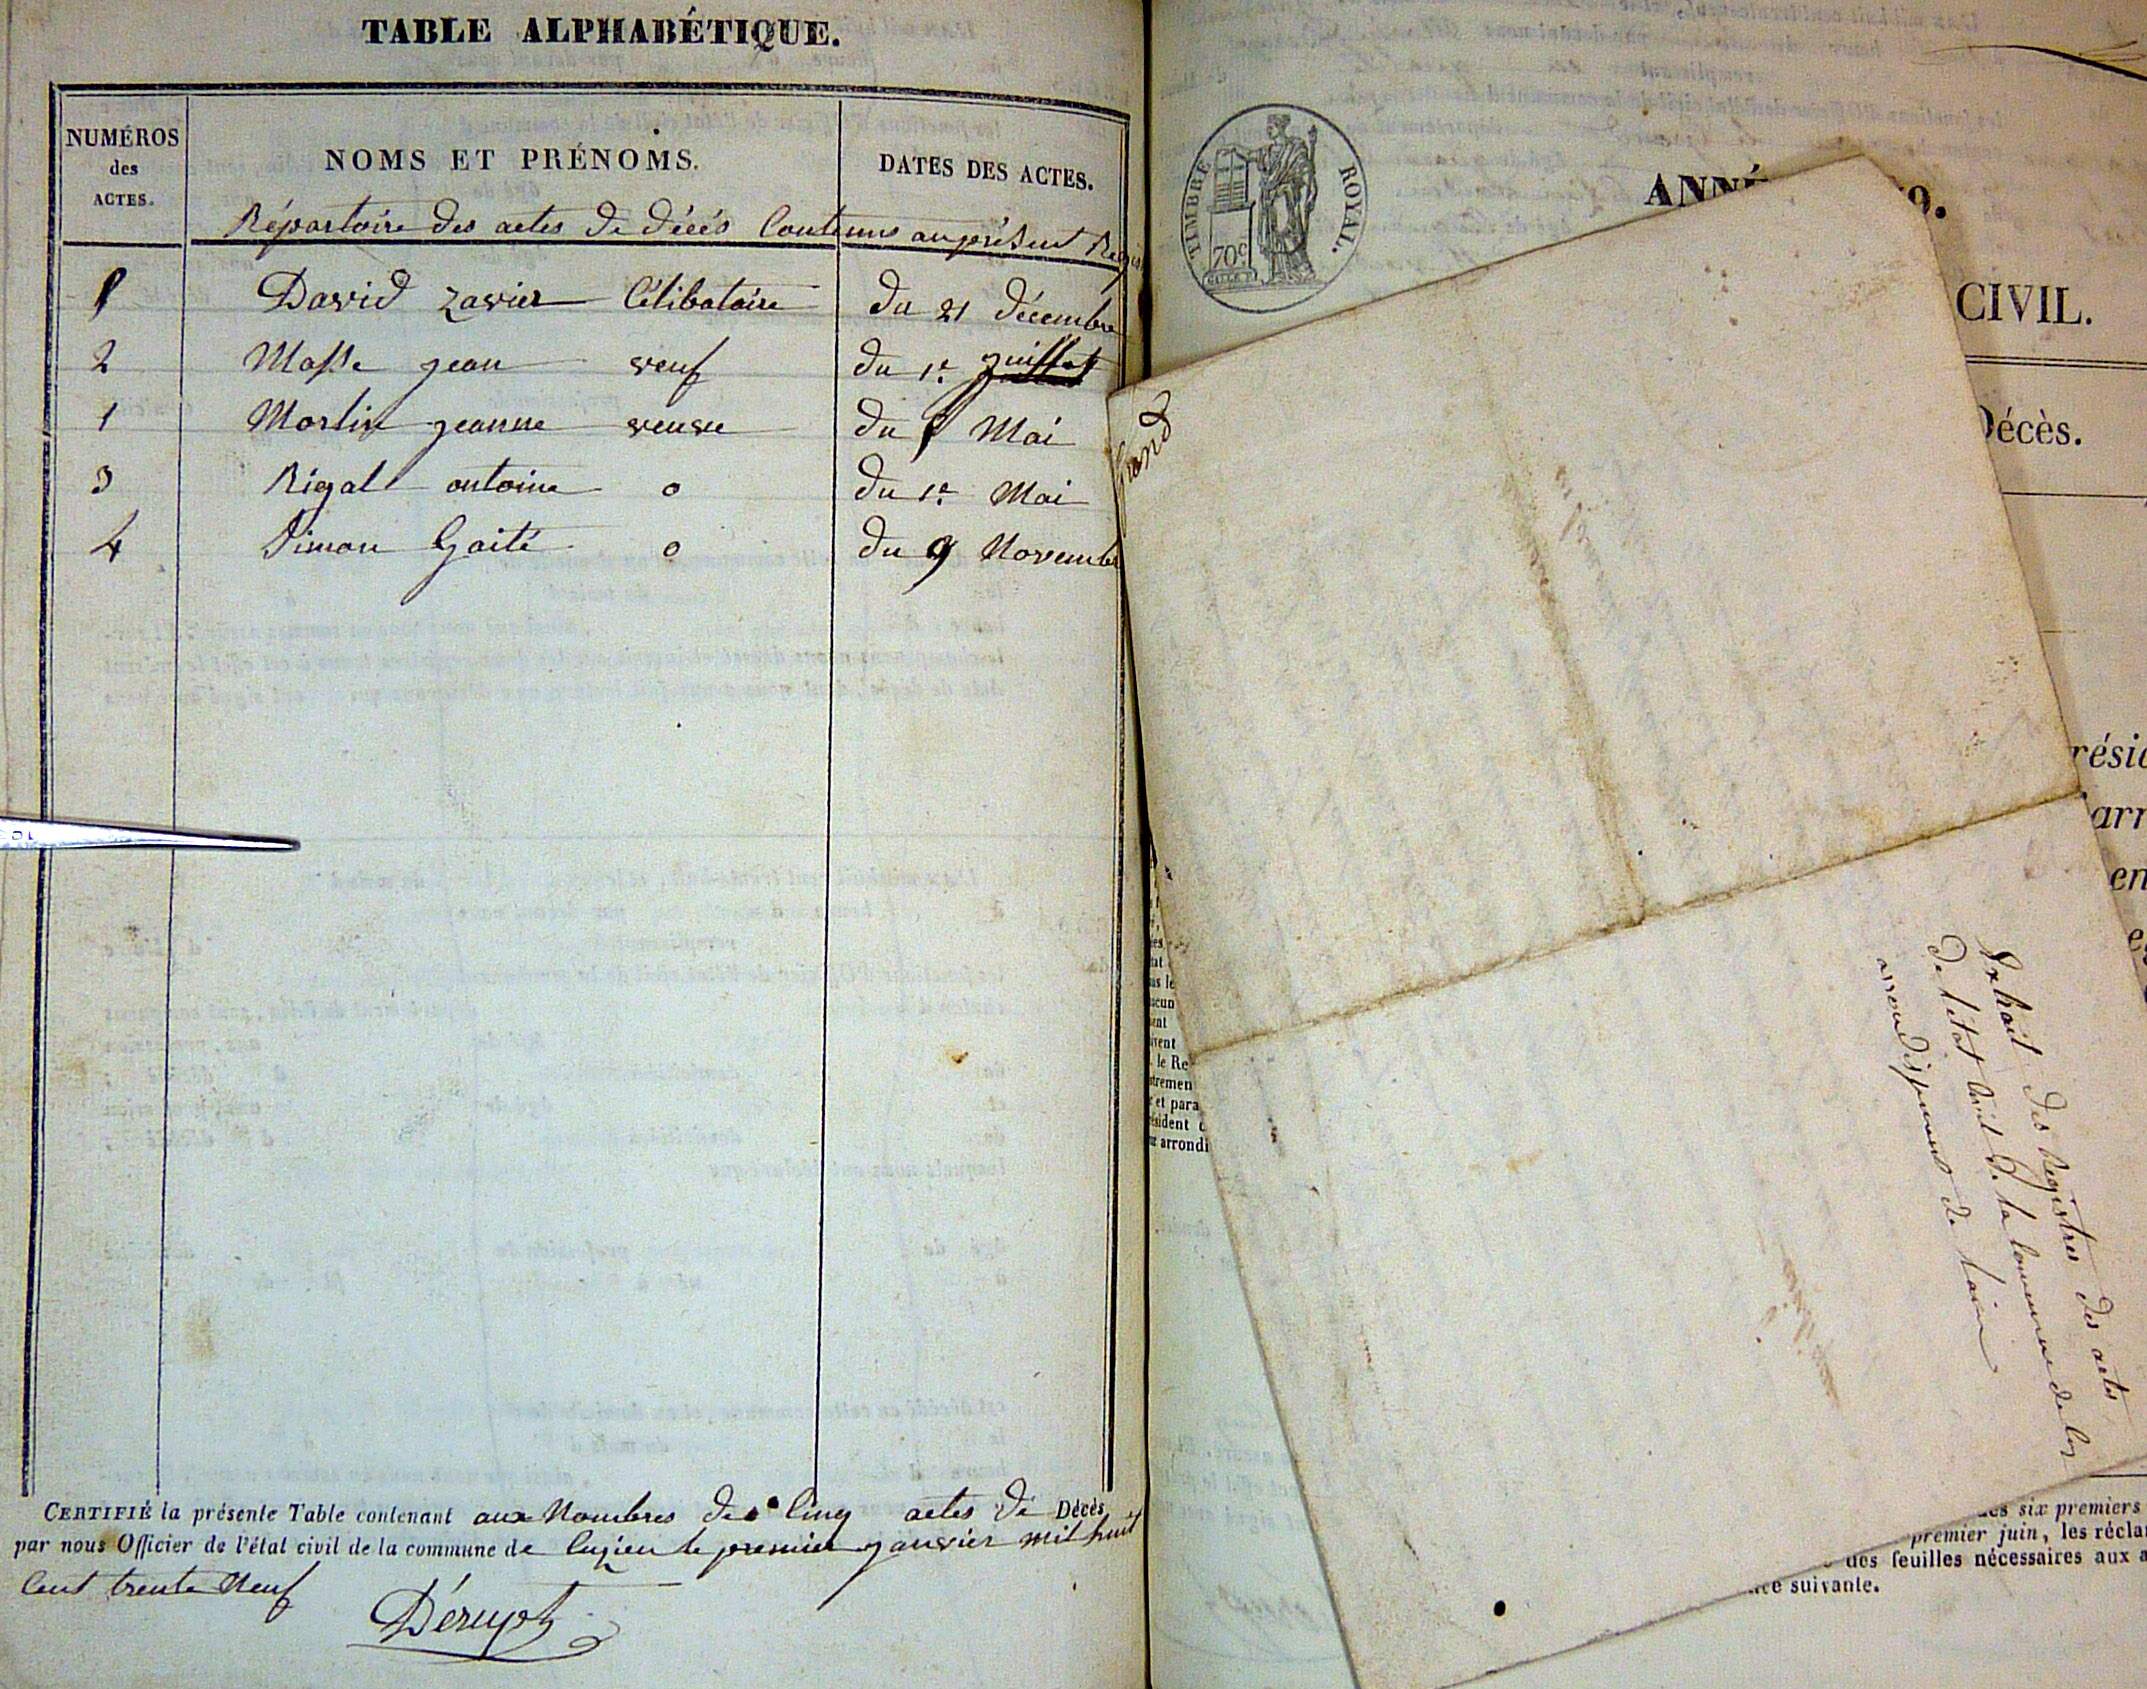 TABLE ALPHABÉTIQUE.
NUMÉROS des ACTES.
NOMS ET PRÉNOMS.
DATES DES ACTES.
Répartoire des actes de décés Contenus au présent
David zavier Célibataire du 21 décembre
2 Masse jean veuf du 1er juillet
1 Martin jeanne veuve du Mai
3 Rigal antoine o du 1er Mai
4 Simon Gaité o du 9 Novembre
CERTIFIÉ la présente Table contenant aux Nombres de Cinq actes de Décès
par nous Officier de l'état civil de la commune de le premier janvier mil huit
Cent trente Neuf
TIMBRE ROYAL.
70c
ANNÉ 9.
CIVIL.
Décès.
résid
arr
en
Extrait des Registres des actes
de l'état Civil de la Commune de
arrondissement de
le Re
et para
arrondi
des six premiers
premier juin, les récla
des feuilles nécessaires aux a
suivante.